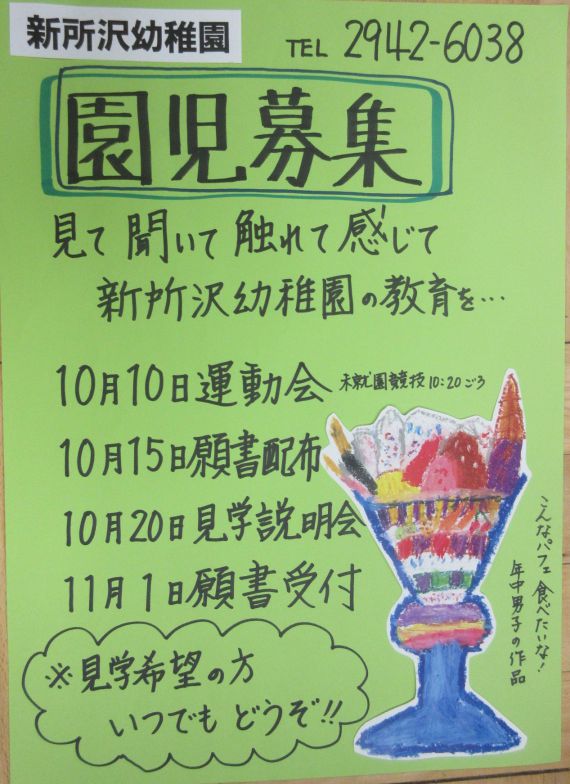 新所沢幼稚園
TEL 2942-6038
園児募集
見て 聞いて 触れて 感じて
新所沢幼稚園の教育を…
10月10日運動会 未就園競技10:20ごろ
10月15日願書配布
10月20日見学説明会
11月1日願書受付
こんなパフェ 食べたいな!
年中男子の作品
※見学希望の方
いつでも どうぞ!!